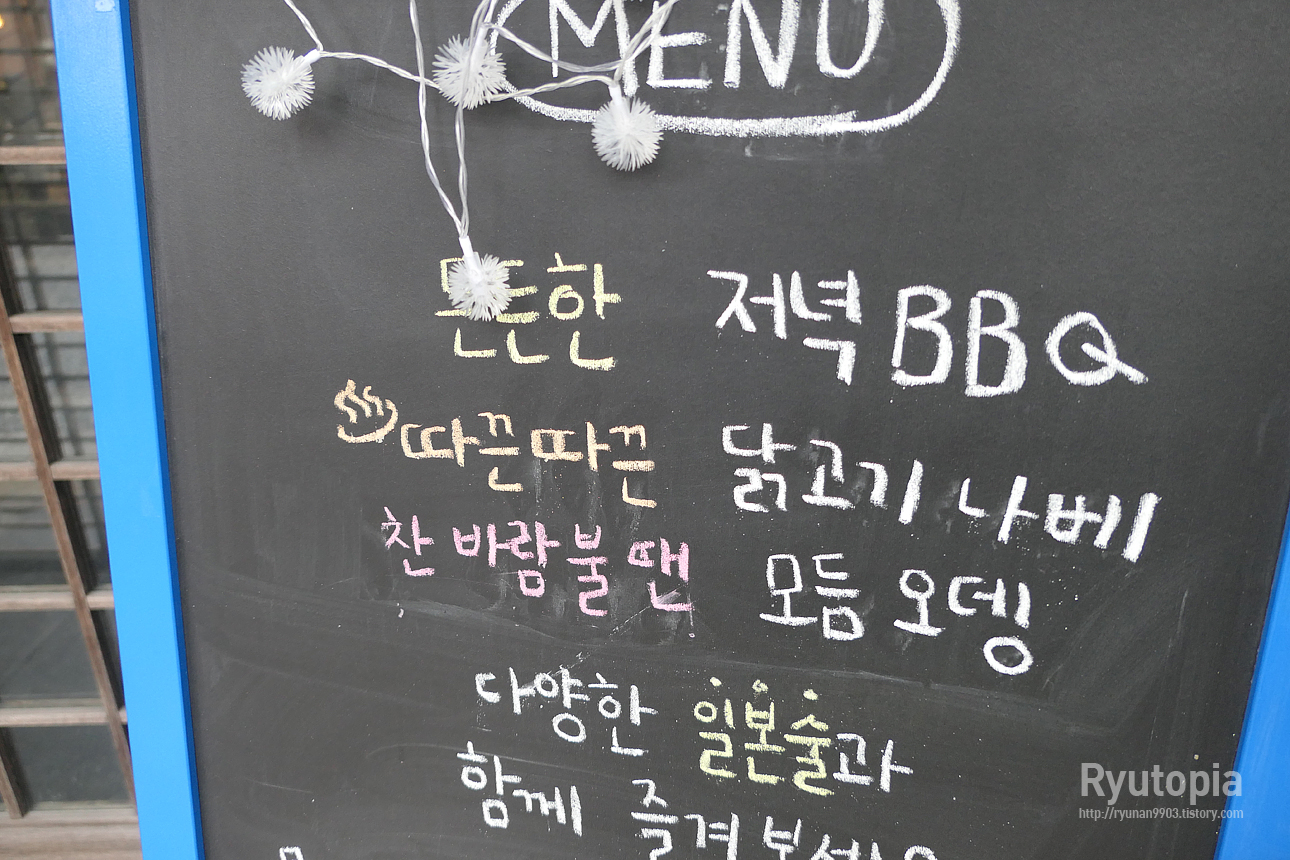 MENU
든든한 저녁 BBQ
따끈따끈 닭고기 나베
찬 바람 불 땐 모듬 오뎅
다양한 일본술과
함께 즐겨보세요
Ryutopia
http://ryunan9903.tistory.com